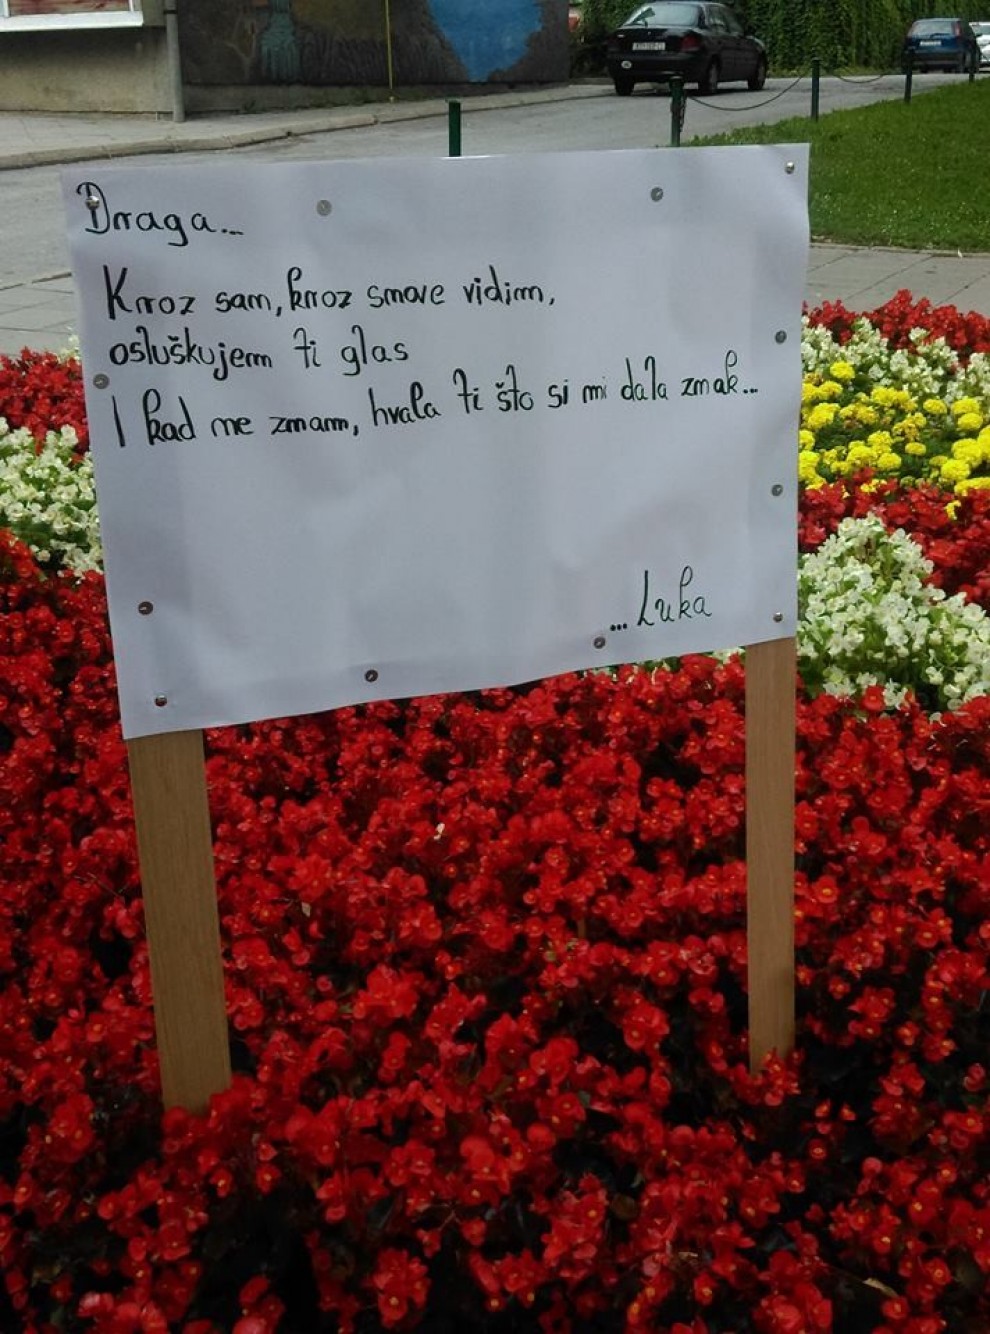 Draga...
Kroz san, kroz snove vidim,
osluškujem ti glas
I kad ne znam, hvala ti što si mi dala znak...
...Luka